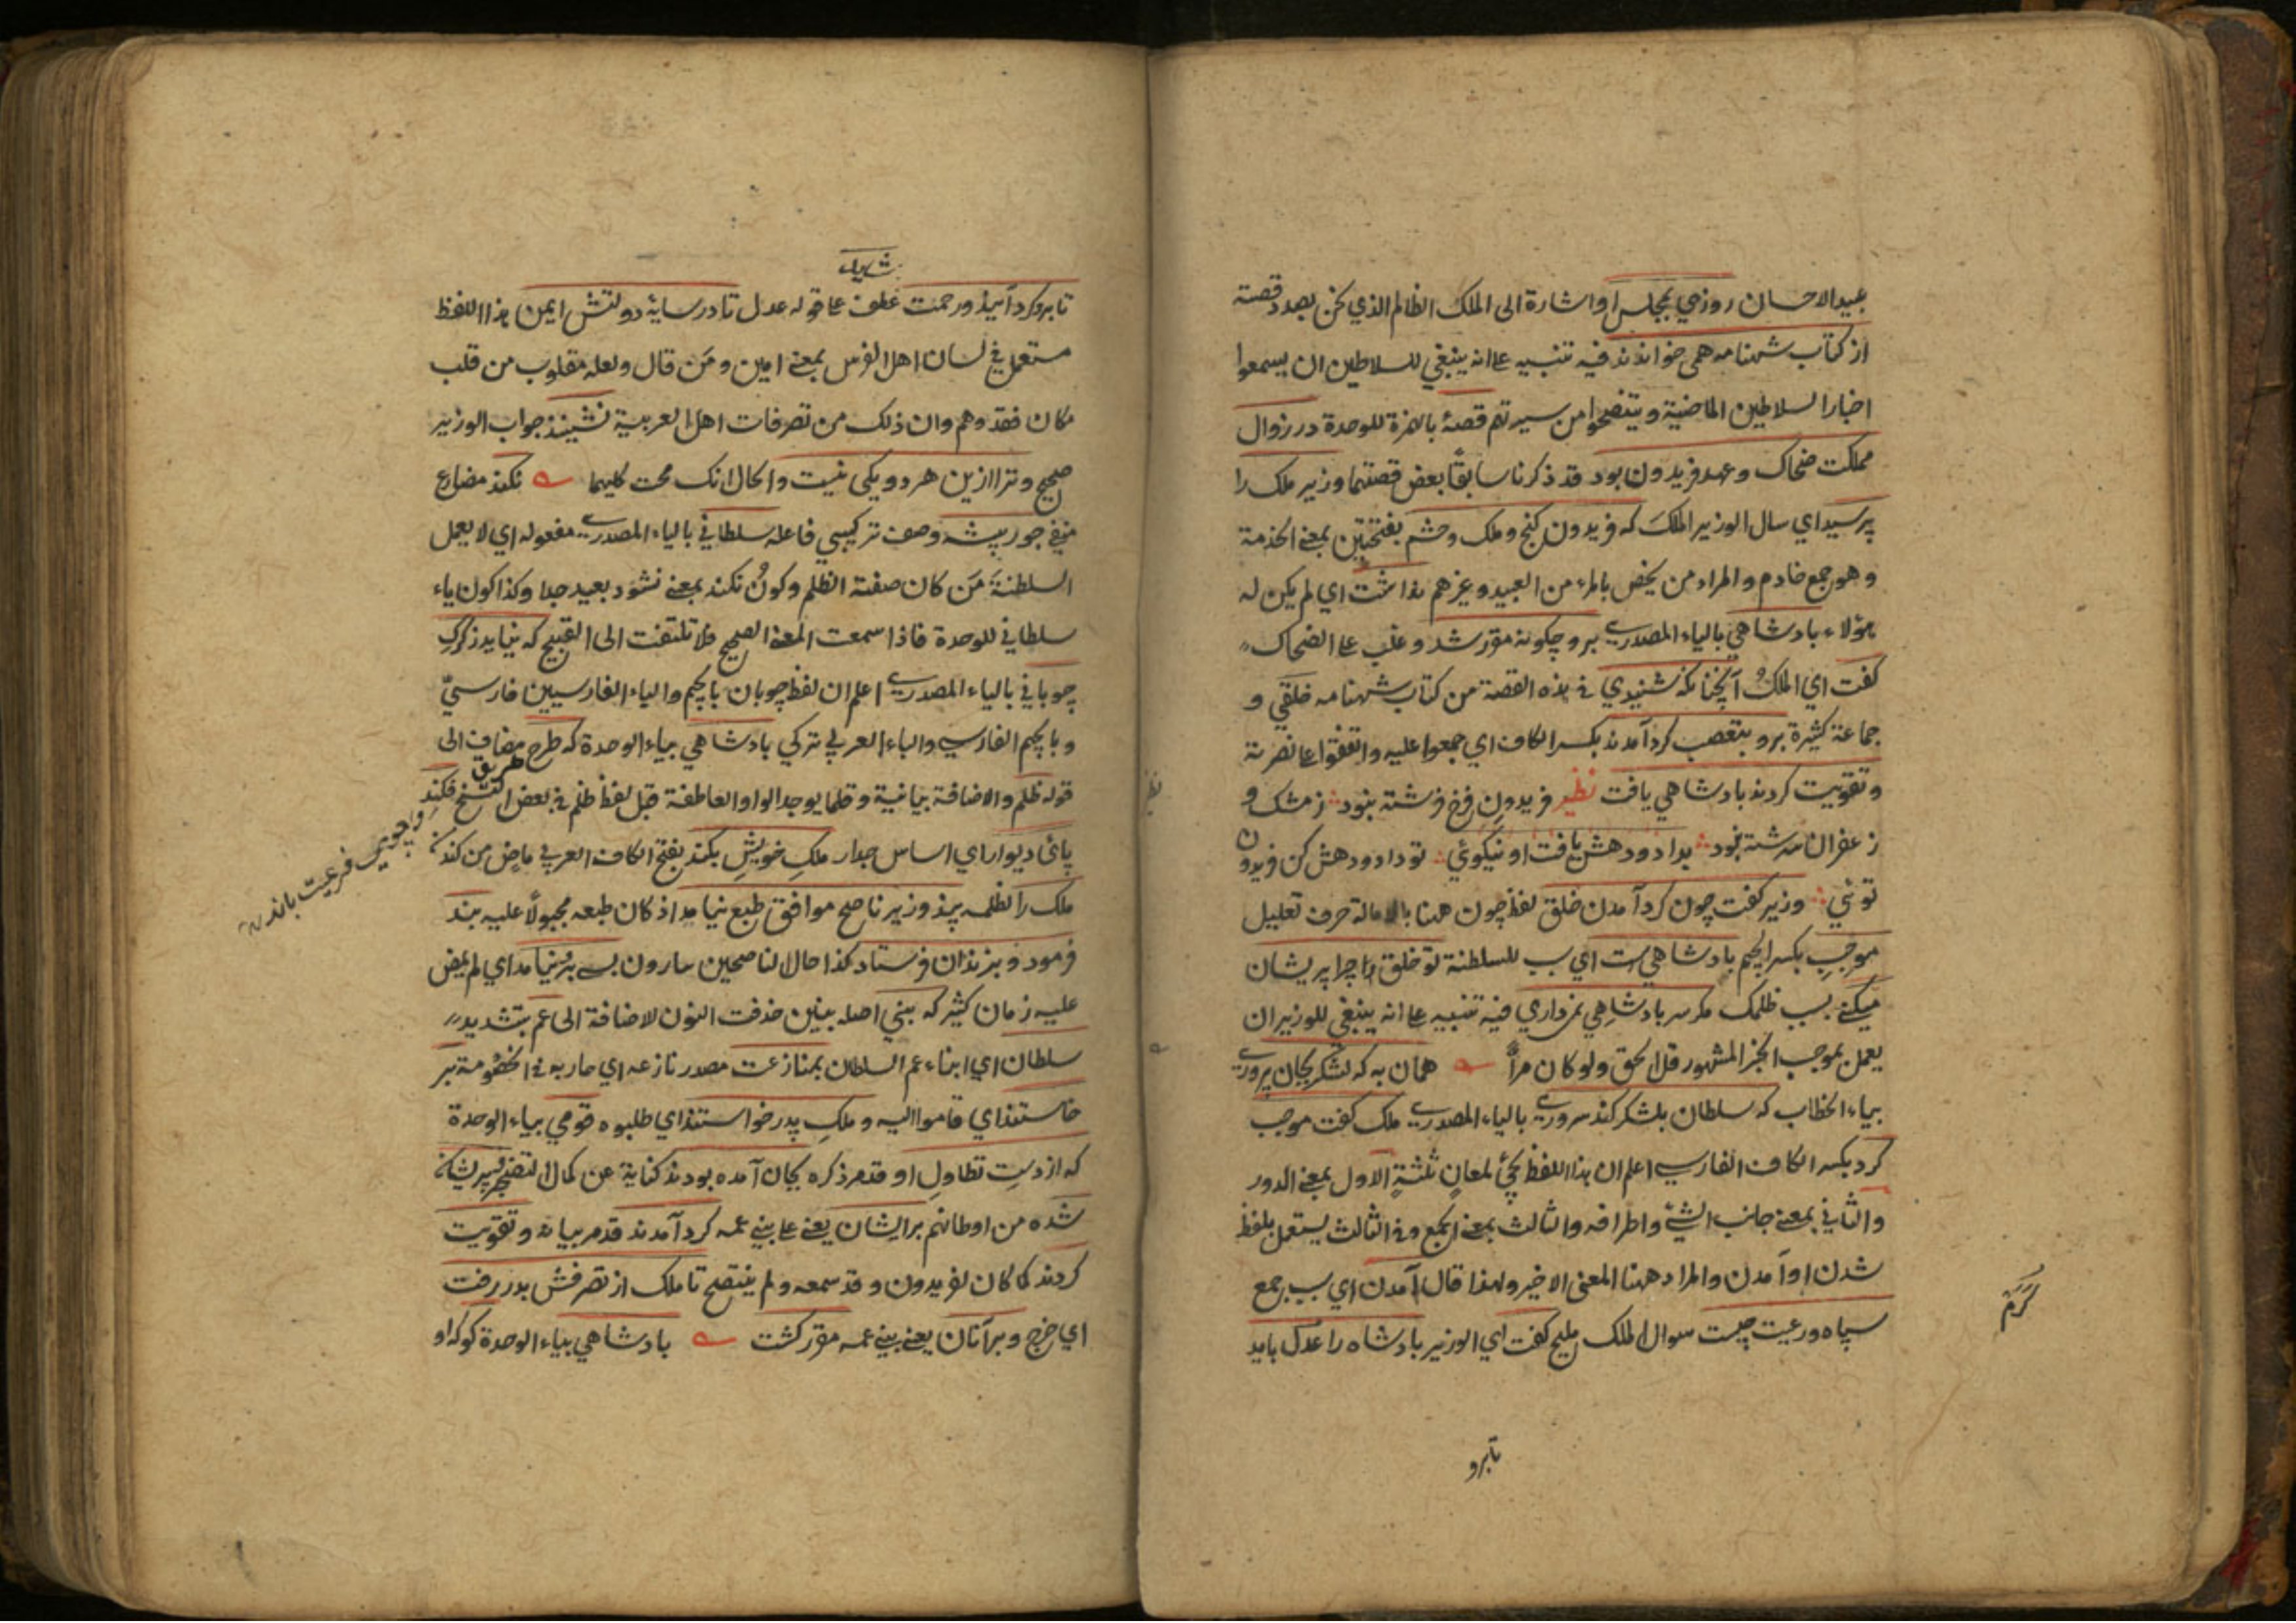 عبيد الاحسان روزي بمجلس او اشارة الى الملك الظالم الذي نحن بصدد قصته
از كتاب شهنامه همى خواندند فيه تنبيه على انه ينبغي للسلاطين ان يسمعوا
اخبار السلاطين الماضية ويتنصحوا من سيرتهم قصهٔ بالهمزة للوحدة در زوال
مملكت ضحاك وعهد فريدون بود قد ذكرنا سابقًا بعض قصتهما وزير ملك را
پرسيد اي سال الوزير الملكَ كه فريدون كنج وملك وحشم بفتحتين بمعنى الخدمة
وهو جمع خادم والمراد من يختص بالمرء من العبيد وغيرهم نداشت اي لم يكن له
هؤلاء پادشاهي بالياء المصدرى برو چكونه مقرر شد وغلب على الضحاك
كفت اي الملكُ آنچنانكه شنيدي في هذه القصة من كتاب شهنامه خلقي و
جماعة كثيرة برو بتعصب كرد آمدند بكسر الكاف اي جمعوا عليه واتفقوا على نصرته
وتقويت كردند پادشاهي يافت نظير فريدون فرخ فرشته نبود ز مشك و
ز عفران سرشته نبود بداد ودهش يافت او نيكوئي تو داد ودهش كن فريدون
توئي وزير كفت چون كرد آمدن خلق لفظ چون هنا بالامالة حرف تعليل
موجبِ بكسر الجيم پادشاهي است اي سبب للسلطنة تو خلق را چرا پريشان
ميكنى بسبب ظلمك مكر سر پادشاهي نمى داري فيه تنبيه على انه ينبغي للوزير ان
يعمل بموجب الخبر المشهور قل الحق ولو كان مرًّا همان به كه لشكر بجان پرورى
بياء الخطاب كه سلطان بلشكر كند سرورى بالياء المصدرى ملك كفت موجب
كرد بكسر الكاف الفارسى اعلم ان هذا اللفظ يجئ لمعانٍ ثلثةٍ الاول بمعنى الدور
والثاني بمعنى جانب الشئ واطرافه والثالث بمعنى الجمع وفي الثالث يستعمل بلفظ
شدن او آمدن والمراد ههنا المعنى الاخير ولهذا قال آمدن اي سبب جمع
سپاه ورعيت چيست سوال الملك مليح كفت اي الوزير پادشاه را عدل بايد
كرم
تا برو
تا برو كرد آيند ورحمت عطف على قوله عدل تا در سايهٔ دولتش ايمن هذا اللفظ
مستعمل في لسان اهل الفرس بمعنى امين ومَن قال ولعله مقلوب من قلب
مكان فقد وهم وان ذلك من تصرفات اهل العربية نشينند جواب الوزير
صحيح وترا ازين هر دو يكى نيست والحال انك محت كليهما نكند مضارع
منفي جور پيشه وصف تركيبي فاعله سلطاني بالياء المصدرى مفعوله اي لا يعمل
السلطنةَ مَن كان صفته الظلم وكونُ نكند بمعنى نشود بعيد جدا وكذا كون ياء
سلطاني للوحدة فاذا سمعت المعنى الصحيح فلا تلتفت الى القبيح كه نيايد ز كرك
چوپاني بالياء المصدرى اعلم ان لفظ چوپان بالجيم والباء الفارسيين فارسيّ
وبالجيم الفارسى والباء العربي تركي پادشاهي بياء الوحدة كه طرح مضاف الى
قوله ظلم والاضافة بيانية وقلما يوجد الواو العاطفة قبل لفظ ظلم في بعض النسخ فكند
پاى ديوار اي اساس جدار ملكِ خويش بكند بفتح الكاف العربي ماض من كندن
ملك را نظلمه پند وزير ناصح موافق طبع نيامد اذ كان طبعه مجبولًا عليه بند
فرمود وبزندان فرستاد كذا حال الناصحين سارون بسى برنيامد اي لم يمض
عليه زمان كثير كه بني اصله بنين حذفت النون للاضافة الى عم بتشديد
سلطان اي ابناء عم السلطان بمنازعت مصدر نازعه اي حاربه في الخصومة بر
خاستند اي قاموا اليه وملكِ پدر خواستند اي طلبوه قومي بياء الوحدة
كه از دستِ تطاولِ او قد مر ذكره بجان آمده بودند كناية عن كمال التضجر پريشان
شده من اوطانهم بر ايشان يعني على بني عمه كرد آمدند قد مر بيانه وتقويت
كردند كما كان لفريدون وقد سمعه ولم يتنصح تا ملك از تصرفش بدر رفت
اي خرج وبر آنان يعني بني عمه مقرر كشت پادشاهي بياء الوحدة كو كه او